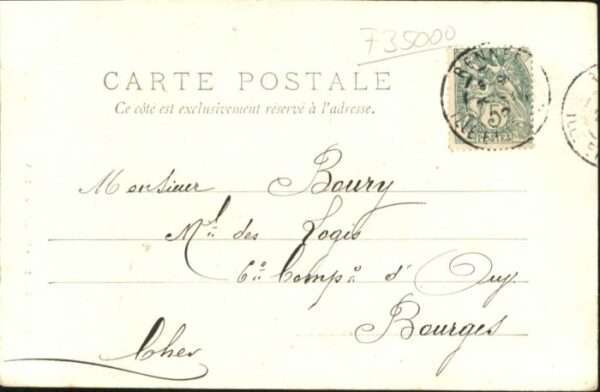 F35000
CARTE POSTALE
Ce côté est exclusivement réservé à l'adresse.
RENNES
5
Monsieur Boury
Mal des Logis
6e Compe d'Ouv
Bourges
Cher